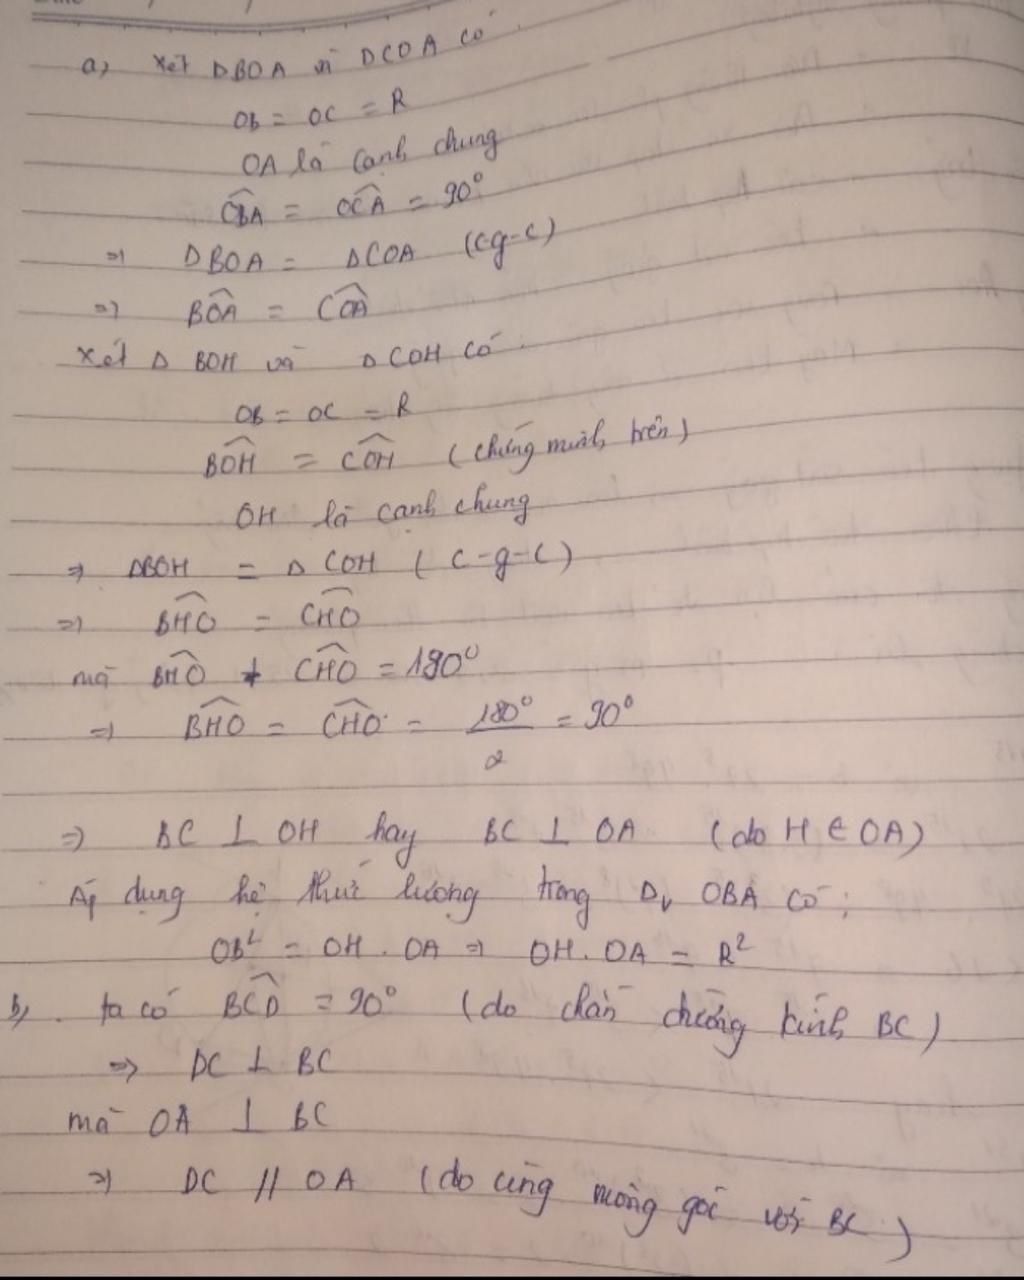 a, Xét ΔBOA và ΔCOA có
OB = OC = R
OA là cạnh chung
OBA = OCA = 90°
=> ΔBOA = ΔCOA (cg-c)
=> BOA = COA
Xét Δ BOH và ΔCOH có :
OB = OC = R
BOH = COH (chứng minh trên)
OH là cạnh chung
=> ΔBOH = Δ COH ( c-g-c)
=> BHO = CHO
mà BHO + CHO = 180°
=> BHO = CHO = 180°/2 = 90°
=> BC ⊥ OH hay BC ⊥ OA (do H ∈ OA)
Áp dụng hệ thức lượng trong Δv OBA có :
OB² = OH . OA => OH. OA = R²
b, ta có BCD = 90° (do chắn đường kính BC)
=> DC ⊥ BC
mà OA ⊥ BC
=> DC // OA (do cùng vuông góc với BC)